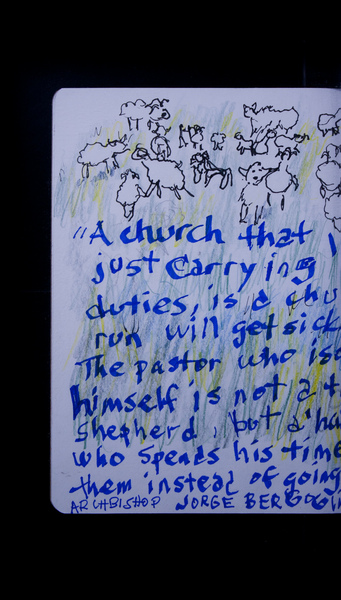 "A church that
just carrying
duties, is a chu
run will get sick
The pastor who iso
himself is not a t
shepherd, but a 'ha
who spends his time
them instead of going
ARCHBISHOP JORGE BERGOGli